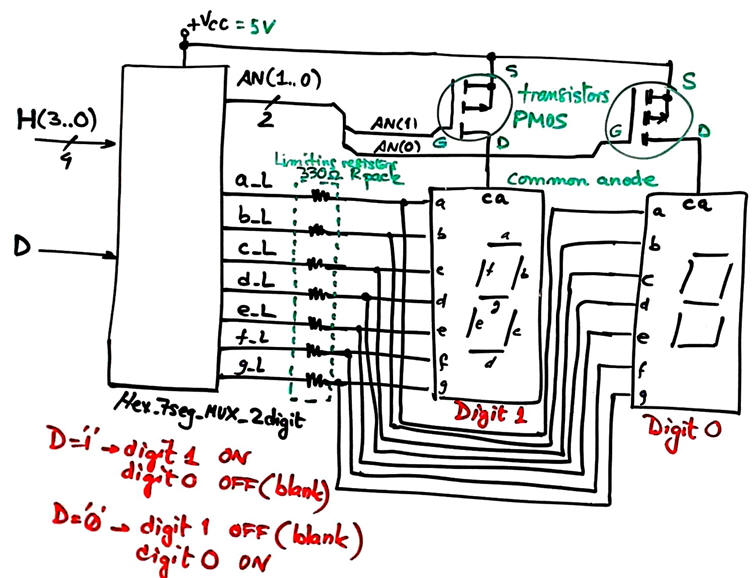 +Vcc = 5V
AN(1..0)
2
H(3..0)
4
D
S
G
D
transistors
PMOS
S
G
D
AN(1)
AN(0)
Limiting resistors
330Ω Rpack
common anode
a_L
b_L
c_L
d_L
e_L
f_L
g_L
ca
a
b
c
d
e
f
g
a
f
b
g
e
c
d
Digit 1
ca
a
b
c
d
e
f
g
Digit 0
Hex_7seg_MUX_2digit
D='1' → digit 1 ON
digit 0 OFF (blank)
D='0' → digit 1 OFF (blank)
digit 0 ON